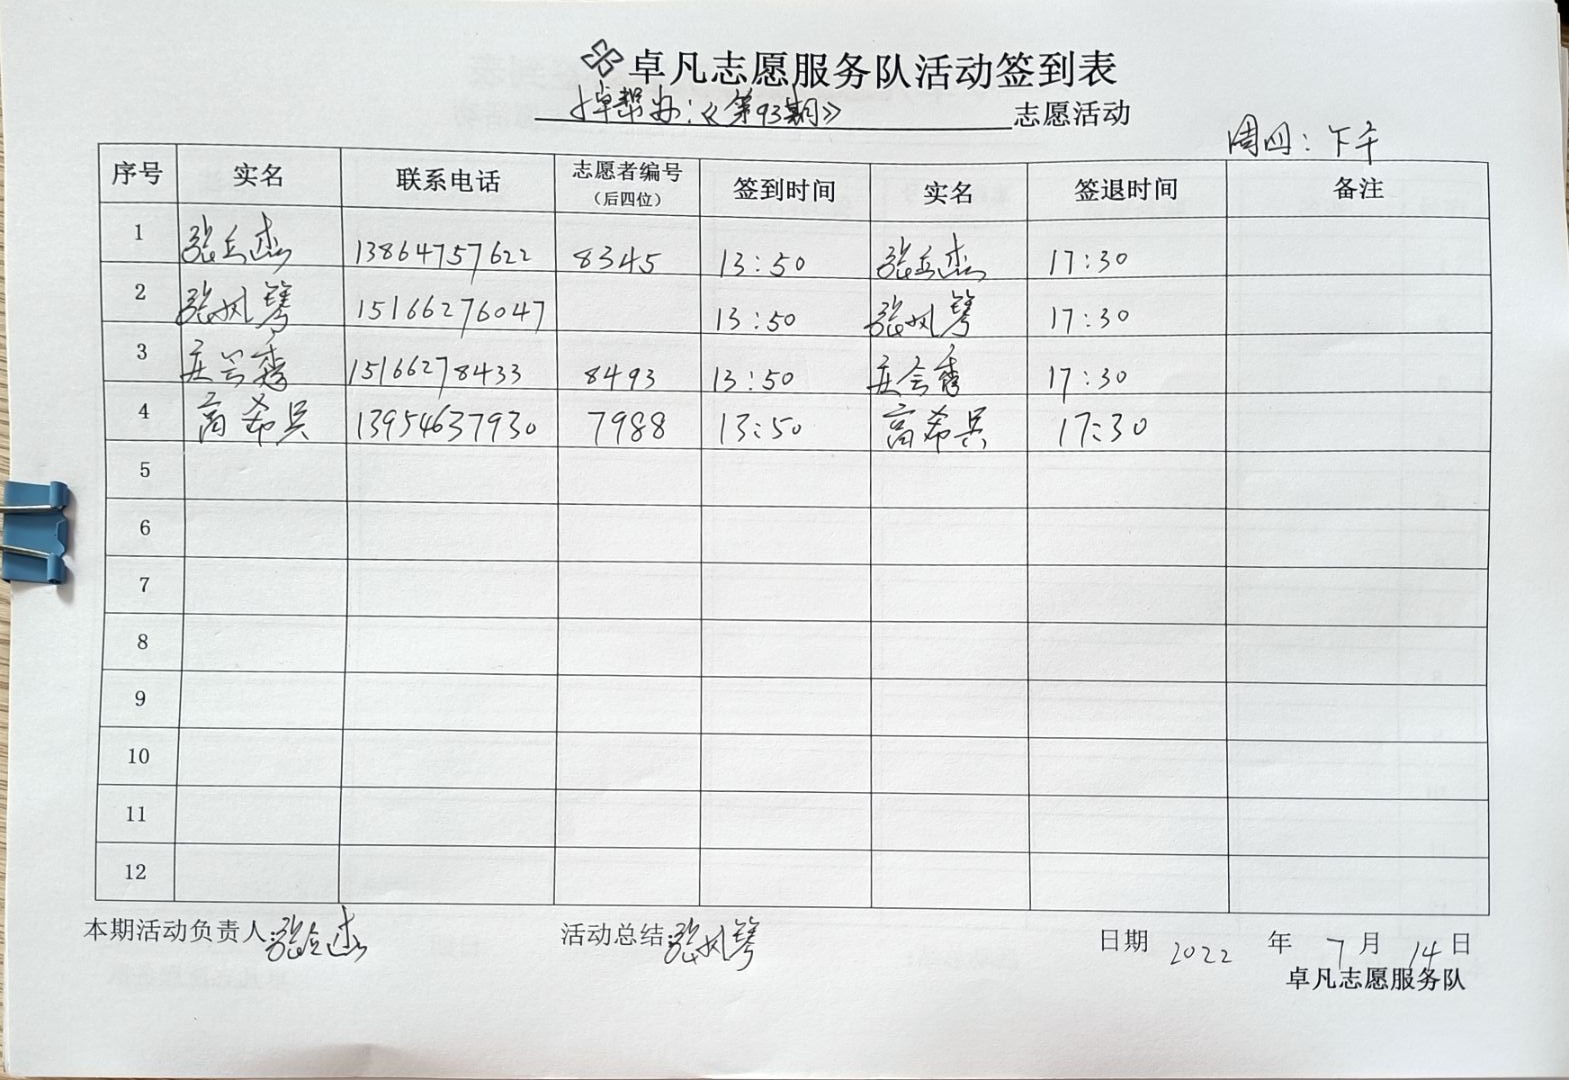 卓凡志愿服务队活动签到表
卓帮办：《第93期》 志愿活动
周四：下午
序号 实名 联系电话 志愿者编号（后四位） 签到时间 实名 签退时间 备注
1 张 13864757622 8345 13:50 张 17:30
2 张风琴 15166276047 13:50 张风琴 17:30
3 15166278433 8493 13:50 17:30
4 高希兵 13954637930 7988 13:50 高希兵 17:30
5
6
7
8
9
10
11
12
本期活动负责人:张 活动总结:张风琴 日期 2022 年 7 月 14 日
卓凡志愿服务队